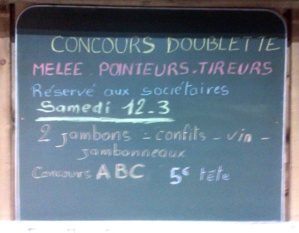 CONCOURS DOUBLETTE
MELEE POINTEURS-TIREURS
Réservé aux sociétaires
Samedi 12.3
2 jambons - confits - vin -
jambonneaux
Concours ABC 5€ tête